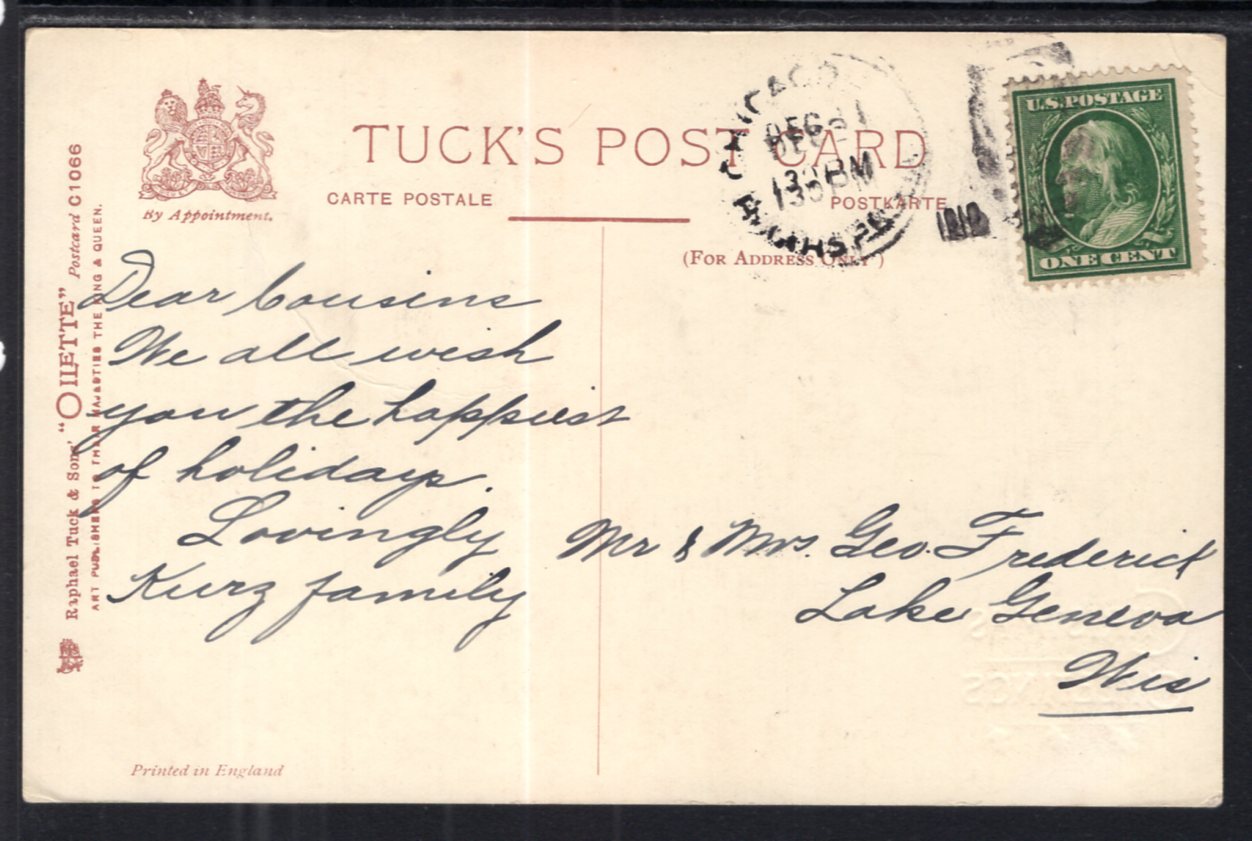 TUCK'S POST CARD
By Appointment.
CARTE POSTALE
POSTKARTE
(FOR ADDRESS ONLY)
Raphael Tuck & Sons' "OILETTE" Postcard C1066
ART PUBLISHERS TO THEIR MAJESTIES THE KING & QUEEN.
CHICAGO
DEC 31
U.S. POSTAGE
ONE CENT
Dear Cousins
We all wish
you the happiest
of holidays.
Lovingly
Kurz family
Mr & Mrs. Geo. Frederick
Lake Geneva
Wis
Printed in England